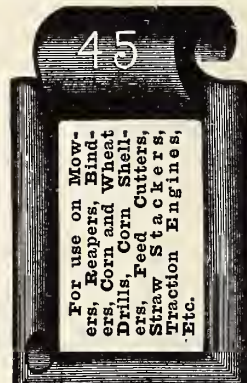 45
For use on Mow-
ers, Reapers, Bind-
ers, Corn and Wheat
Drills, Corn Shell-
ers, Feed Cutters,
Straw Stackers,
Traction Engines,
Etc.